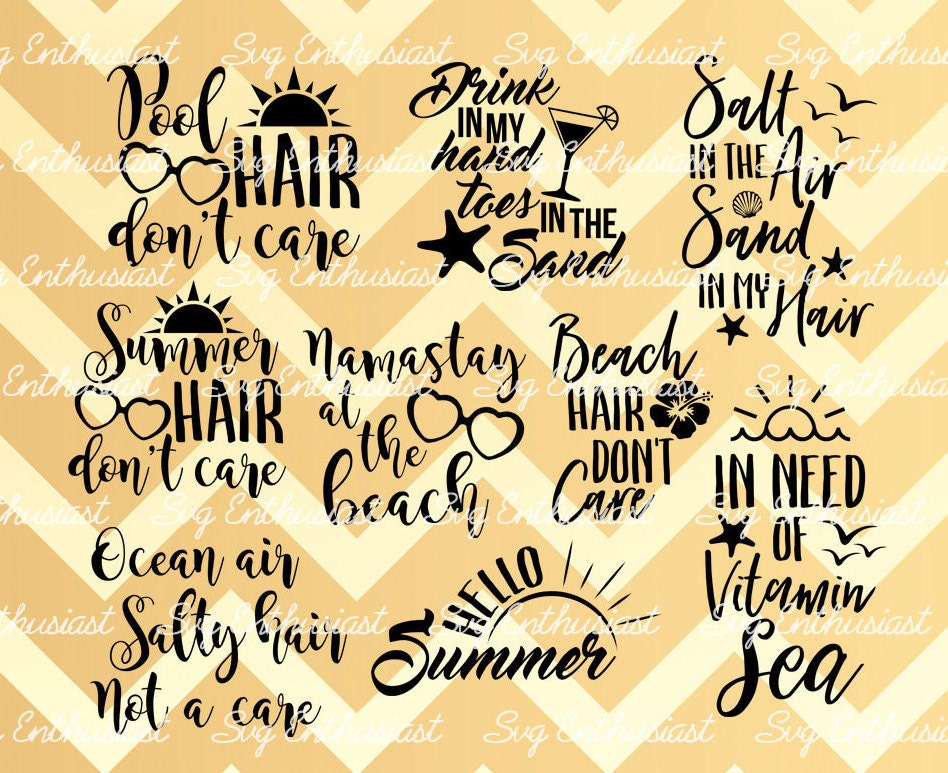 Svg Enthusiast
Pool
HAIR
don't care
Drink
IN MY
hand
toes
IN THE
Sand
Salt
IN THE Air
Sand
IN MY Hair
Summer
HAIR
don't care
Namastay
at
the
beach
Beach
HAIR
DON'T
Care
IN NEED
OF
Vitamin
Sea
Ocean air
Salty hair
Not a care
HELLO
Summer